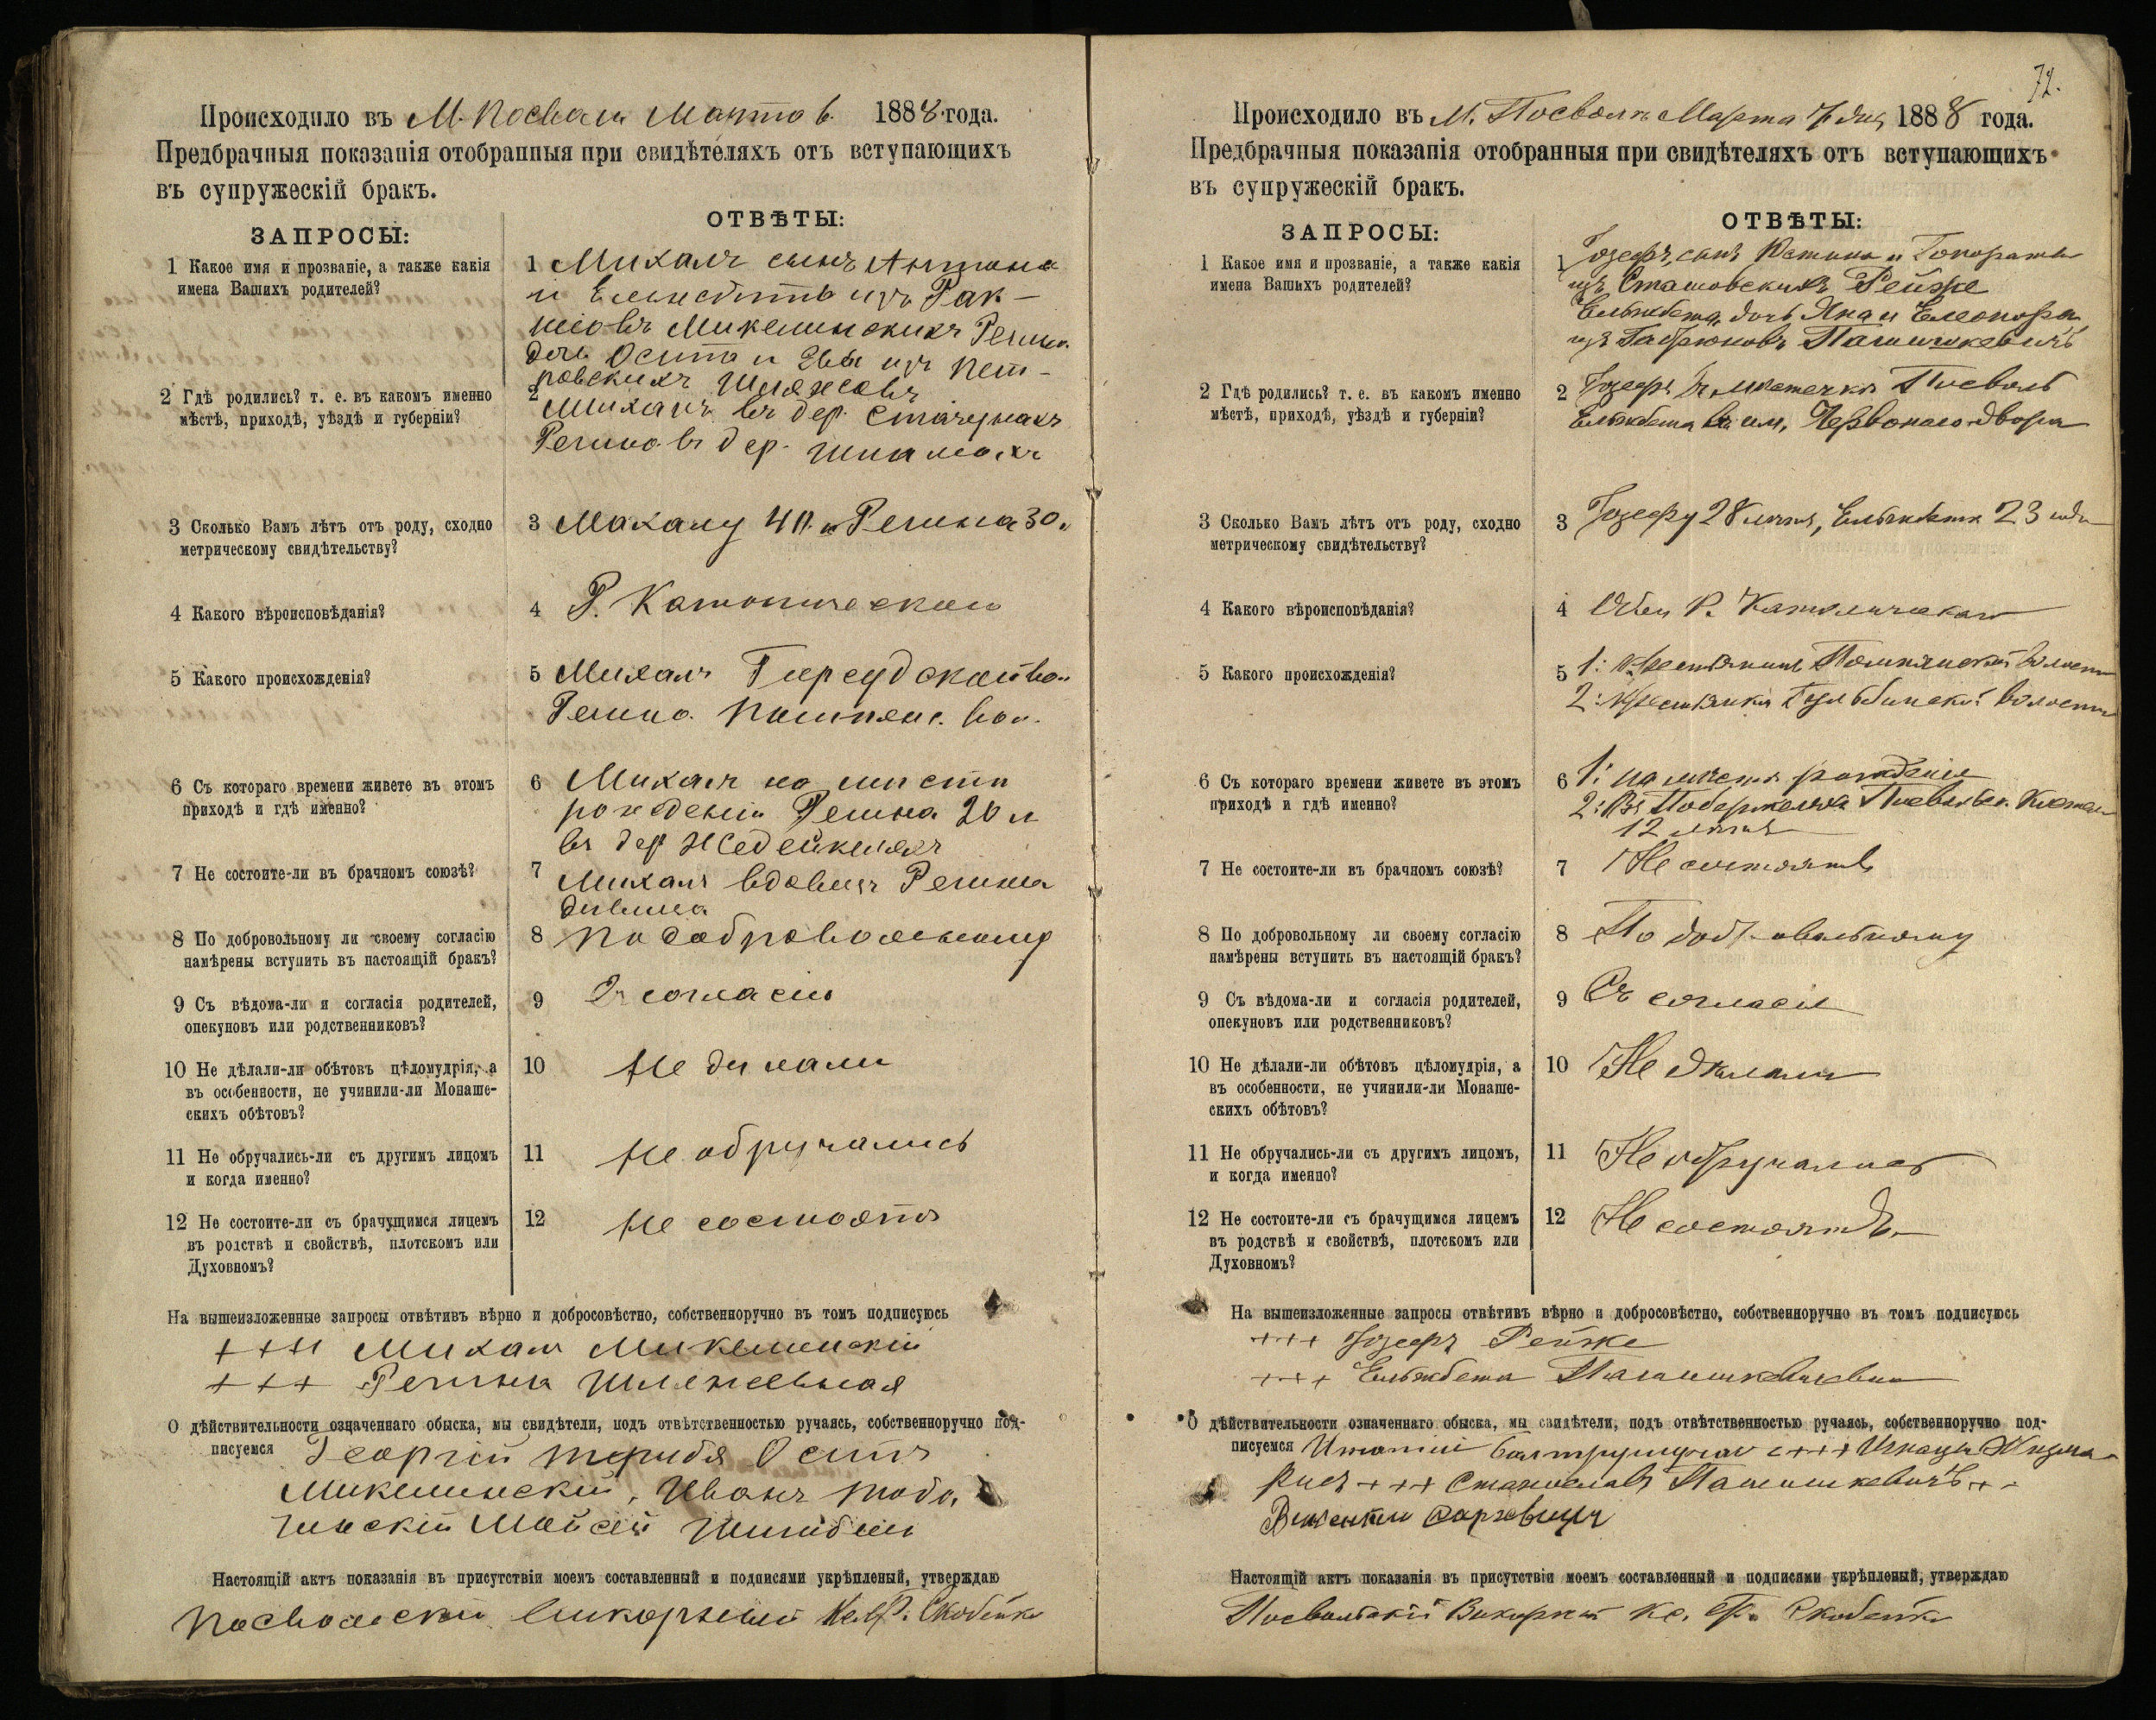 Происходило въ М. Посвали Марта 6. 1888 года.
Предбрачныя показанія отобранныя при свидѣтеляхъ отъ вступающихъ
въ супружескій бракъ.
ЗАПРОСЫ:
ОТВѢТЫ:
1 Какое имя и прозваніе, а также какія
имена Вашихъ родителей?
1 Михалъ сынъ Антона
и Ельжбеты изъ Рак-
Микелинскихъ Регина
дочь Осипа и Эвы изъ Пет-
ровскихъ Шляжсовъ
2 Гдѣ родились? т. е. въ какомъ именно
мѣстѣ, приходѣ, уѣздѣ и губерніи?
2 Михалъ въ дер. Стачунахъ
Регина въ дер.
3 Сколько Вамъ лѣтъ отъ роду, сходно
метрическому свидѣтельству?
3 Махалу 40 и Регина 30.
4 Какого вѣроисповѣданія?
4 Р. Католическаго
5 Какого происхожденія?
5 Михалъ Гирсудской вол.
Регина Помпянс. вол.
6 Съ котораго времени живете въ этомъ
приходѣ и гдѣ именно?
6 Михалъ на мисти
рожденія Регина 20 л
въ дер Жедейкеляхъ
7 Не состоите-ли въ брачномъ союзѣ?
7 Михалъ вдовецъ Регина
дивица
8 По добровольному ли своему согласію
намѣрены вступить въ настоящій бракъ?
8 По добровольному
9 Съ вѣдома-ли и согласія родителей,
опекуновъ или родственниковъ?
9 Съ согласію
10 Не дѣлали-ли обѣтовъ цѣломудрія, а
въ особенности, не учинили-ли Монаше-
скихъ обѣтовъ?
10 Не дилали
11 Не обручались-ли съ другимъ лицомъ
и когда именно?
11 Не обручались
12 Не состоите-ли съ брачущимся лицемъ
въ родствѣ и свойствѣ, плотскомъ или
Духовномъ?
12 Не состоятъ
На вышеизложенные запросы отвѣтивъ вѣрно и добросовѣстно, собственноручно въ томъ подписуюсь
+++ Михалъ Микелинскій
+++ Регина
О дѣйствительности означеннаго обыска, мы свидѣтели, подъ отвѣтственностью ручаясь, собственноручно под-
писуемся Георгій Осипъ
Микелинскій, Иванъ
Мойсей
Настоящій актъ показанія въ присутствіи моемъ составленный и подписями укрѣпленый, утверждаю
Посвольскій викарный Кс. Ф. Скобейко
72.
Происходило въ М. Посволь Марта 7 дня 1888 года.
Предбрачныя показанія отобранныя при свидѣтеляхъ отъ вступающихъ
въ супружескій бракъ.
ЗАПРОСЫ:
ОТВѢТЫ:
1 Какое имя и прозваніе, а также какія
имена Вашихъ родителей?
1 Іозефъ, сынъ Юстина и Гонораты
изъ Сташовскихъ Рейже
Ельжбета, дочь Яна и Елеонора
изъ Пашишкевичъ
2 Гдѣ родились? т. е. въ какомъ именно
мѣстѣ, приходѣ, уѣздѣ и губерніи?
2 Іозефъ въ мѣстечкѣ Посволь
Ельжбета въ им. Червоного-двора
3 Сколько Вамъ лѣтъ отъ роду, сходно
метрическому свидѣтельству?
3 Іозефу 28 лѣтъ, Ельжбета 23 года
4 Какого вѣроисповѣданія?
4 Обеи Р. Католическаго
5 Какого происхожденія?
5 1: Крестьянинъ Помпянской волости
2: Крестьянка волости
6 Съ котораго времени живете въ этомъ
приходѣ и гдѣ именно?
6 1: на мѣстѣ рожденія
2: Въ
12 лѣтъ
7 Не состоите-ли въ брачномъ союзѣ?
7 Не состоятъ
8 По добровольному ли своему согласію
намѣрены вступить въ настоящій бракъ?
8 По добровольному
9 Съ вѣдома-ли и согласія родителей,
опекуновъ или родственниковъ?
9 Съ согласія
10 Не дѣлали-ли обѣтовъ цѣломудрія, а
въ особенности, не учинили-ли Монаше-
скихъ обѣтовъ?
10 Не дѣлали
11 Не обручались-ли съ другимъ лицомъ,
и когда именно?
11 Не обручались
12 Не состоите-ли съ брачущимся лицемъ
въ родствѣ и свойствѣ, плотскомъ или
Духовномъ?
12 Не состоятъ
На вышеизложенные запросы отвѣтивъ вѣрно и добросовѣстно, собственноручно въ томъ подписуюсь
+++ Іозефъ Рейже
+++ Ельжбета
О дѣйствительности означеннаго обыска, мы свидѣтели, подъ отвѣтственностью ручаясь, собственноручно под-
писуемся +++ Игнацы
+++ Станиславъ Пашишкевичъ ++
Викентій
Настоящій актъ показанія въ присутствіи моемъ составленный и подписями укрѣпленый, утверждаю
Посвольскій Викарный Кс. Ф. Скобейко